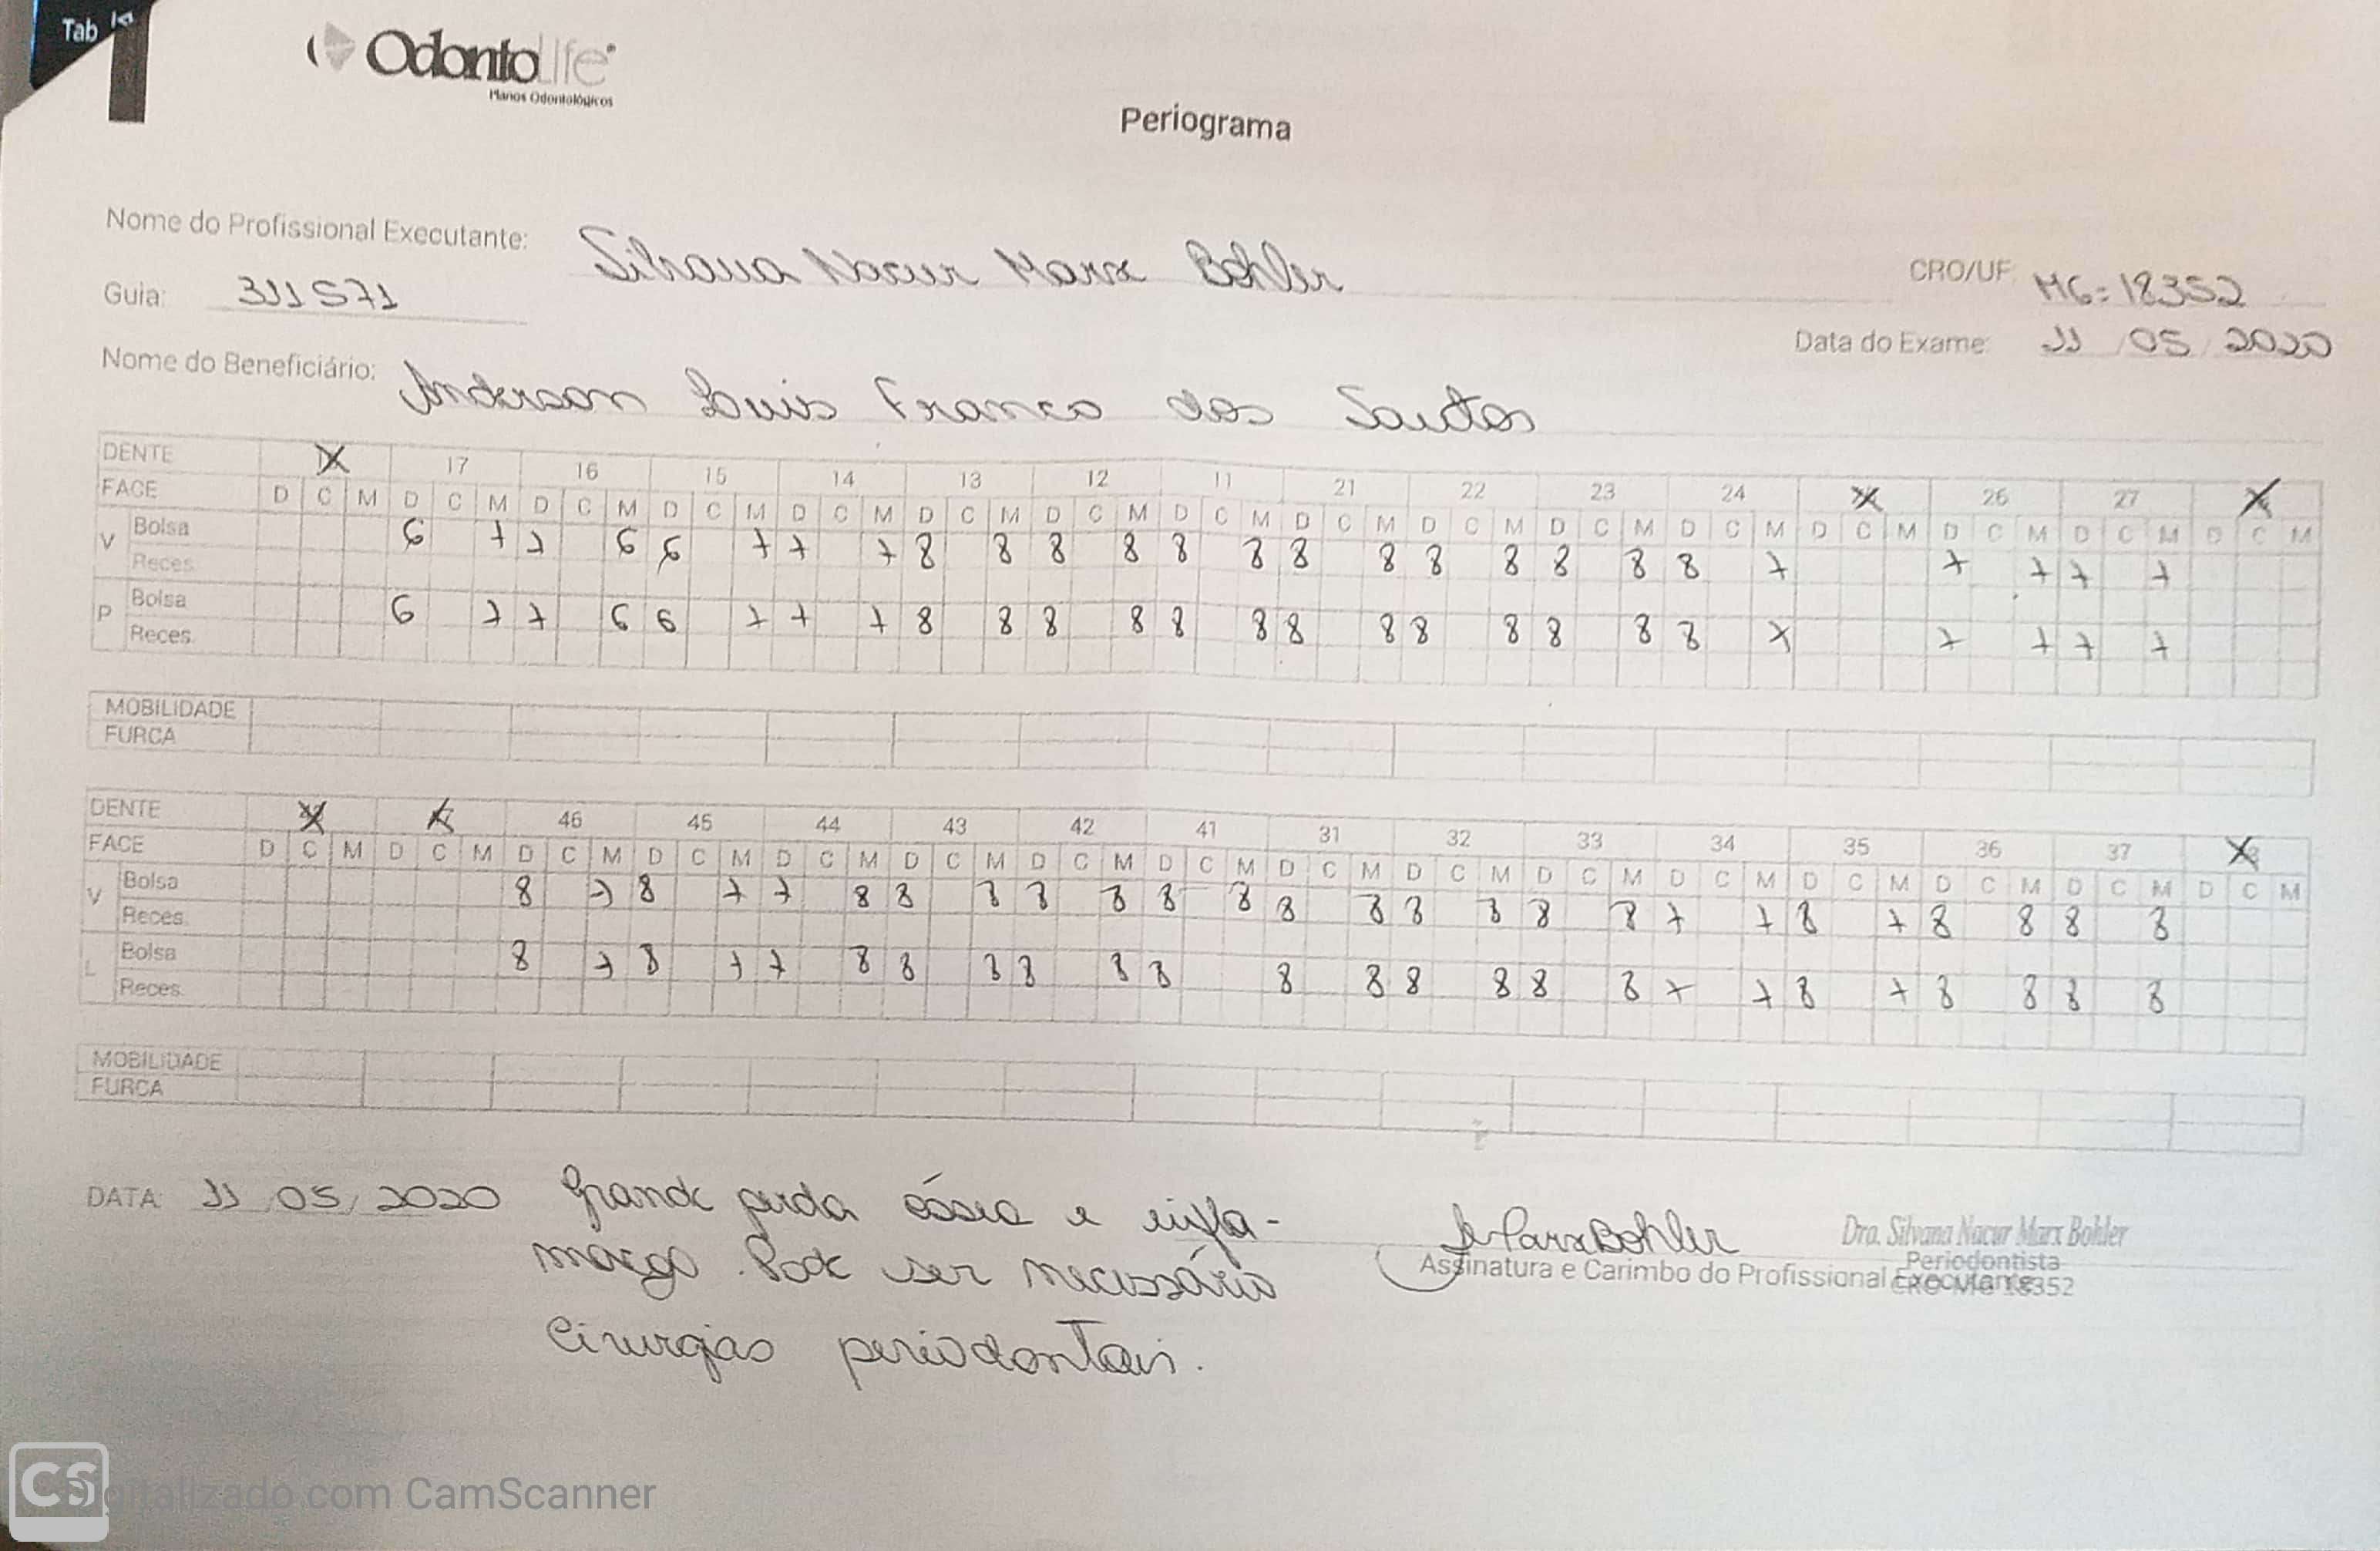 Tab
OdontoLife
Planos Odontológicos
Periograma
Nome do Profissional Executante: Silvana Nacur Marx Bohler
CRO/UF MG=18352
Guia: 311571
Data do Exame: 11 05/2020
Nome do Beneficiário: Anderson Luis Franco dos Santos
DENTE 17 16 15 14 13 12 11 21 22 23 24 26 27
FACE D C M D C M D C M D C M D C M D C M D C M D C M D C M D C M D C M D C M D C M D C M D C M D C M
V Bolsa 6 7 7 6 6 7 7 7 8 8 8 8 8 8 8 8 8 8 8 8 8 7 7 7 7 7
Reces.
P Bolsa 6 7 7 6 6 7 7 7 8 8 8 8 8 8 8 8 8 8 8 8 8 7 7 7 7 7
Reces.
MOBILIDADE
FURCA
DENTE 46 45 44 43 42 41 31 32 33 34 35 36 37
FACE D C M D C M D C M D C M D C M D C M D C M D C M D C M D C M D C M D C M D C M D C M D C M D C M
V Bolsa 8 7 8 7 7 8 8 8 8 8 8 8 8 8 8 8 8 8 7 7 8 7 8 8 8 8
Reces.
L Bolsa 8 7 8 7 7 8 8 8 8 8 8 8 8 8 8 8 8 7 7 8 7 8 8 8 8
Reces.
MOBILIDADE
FURCA
DATA 11/05/2020 Grande perda óssea e infla-
mação. Pode ser necessário
cirurgias periodontais.
MarxBohler
Dra. Silvana Nacur Marx Bohler
Periodontista
Assinatura e Carimbo do Profissional Executante
CRO-MG 18352
CS
Digitalizado com CamScanner